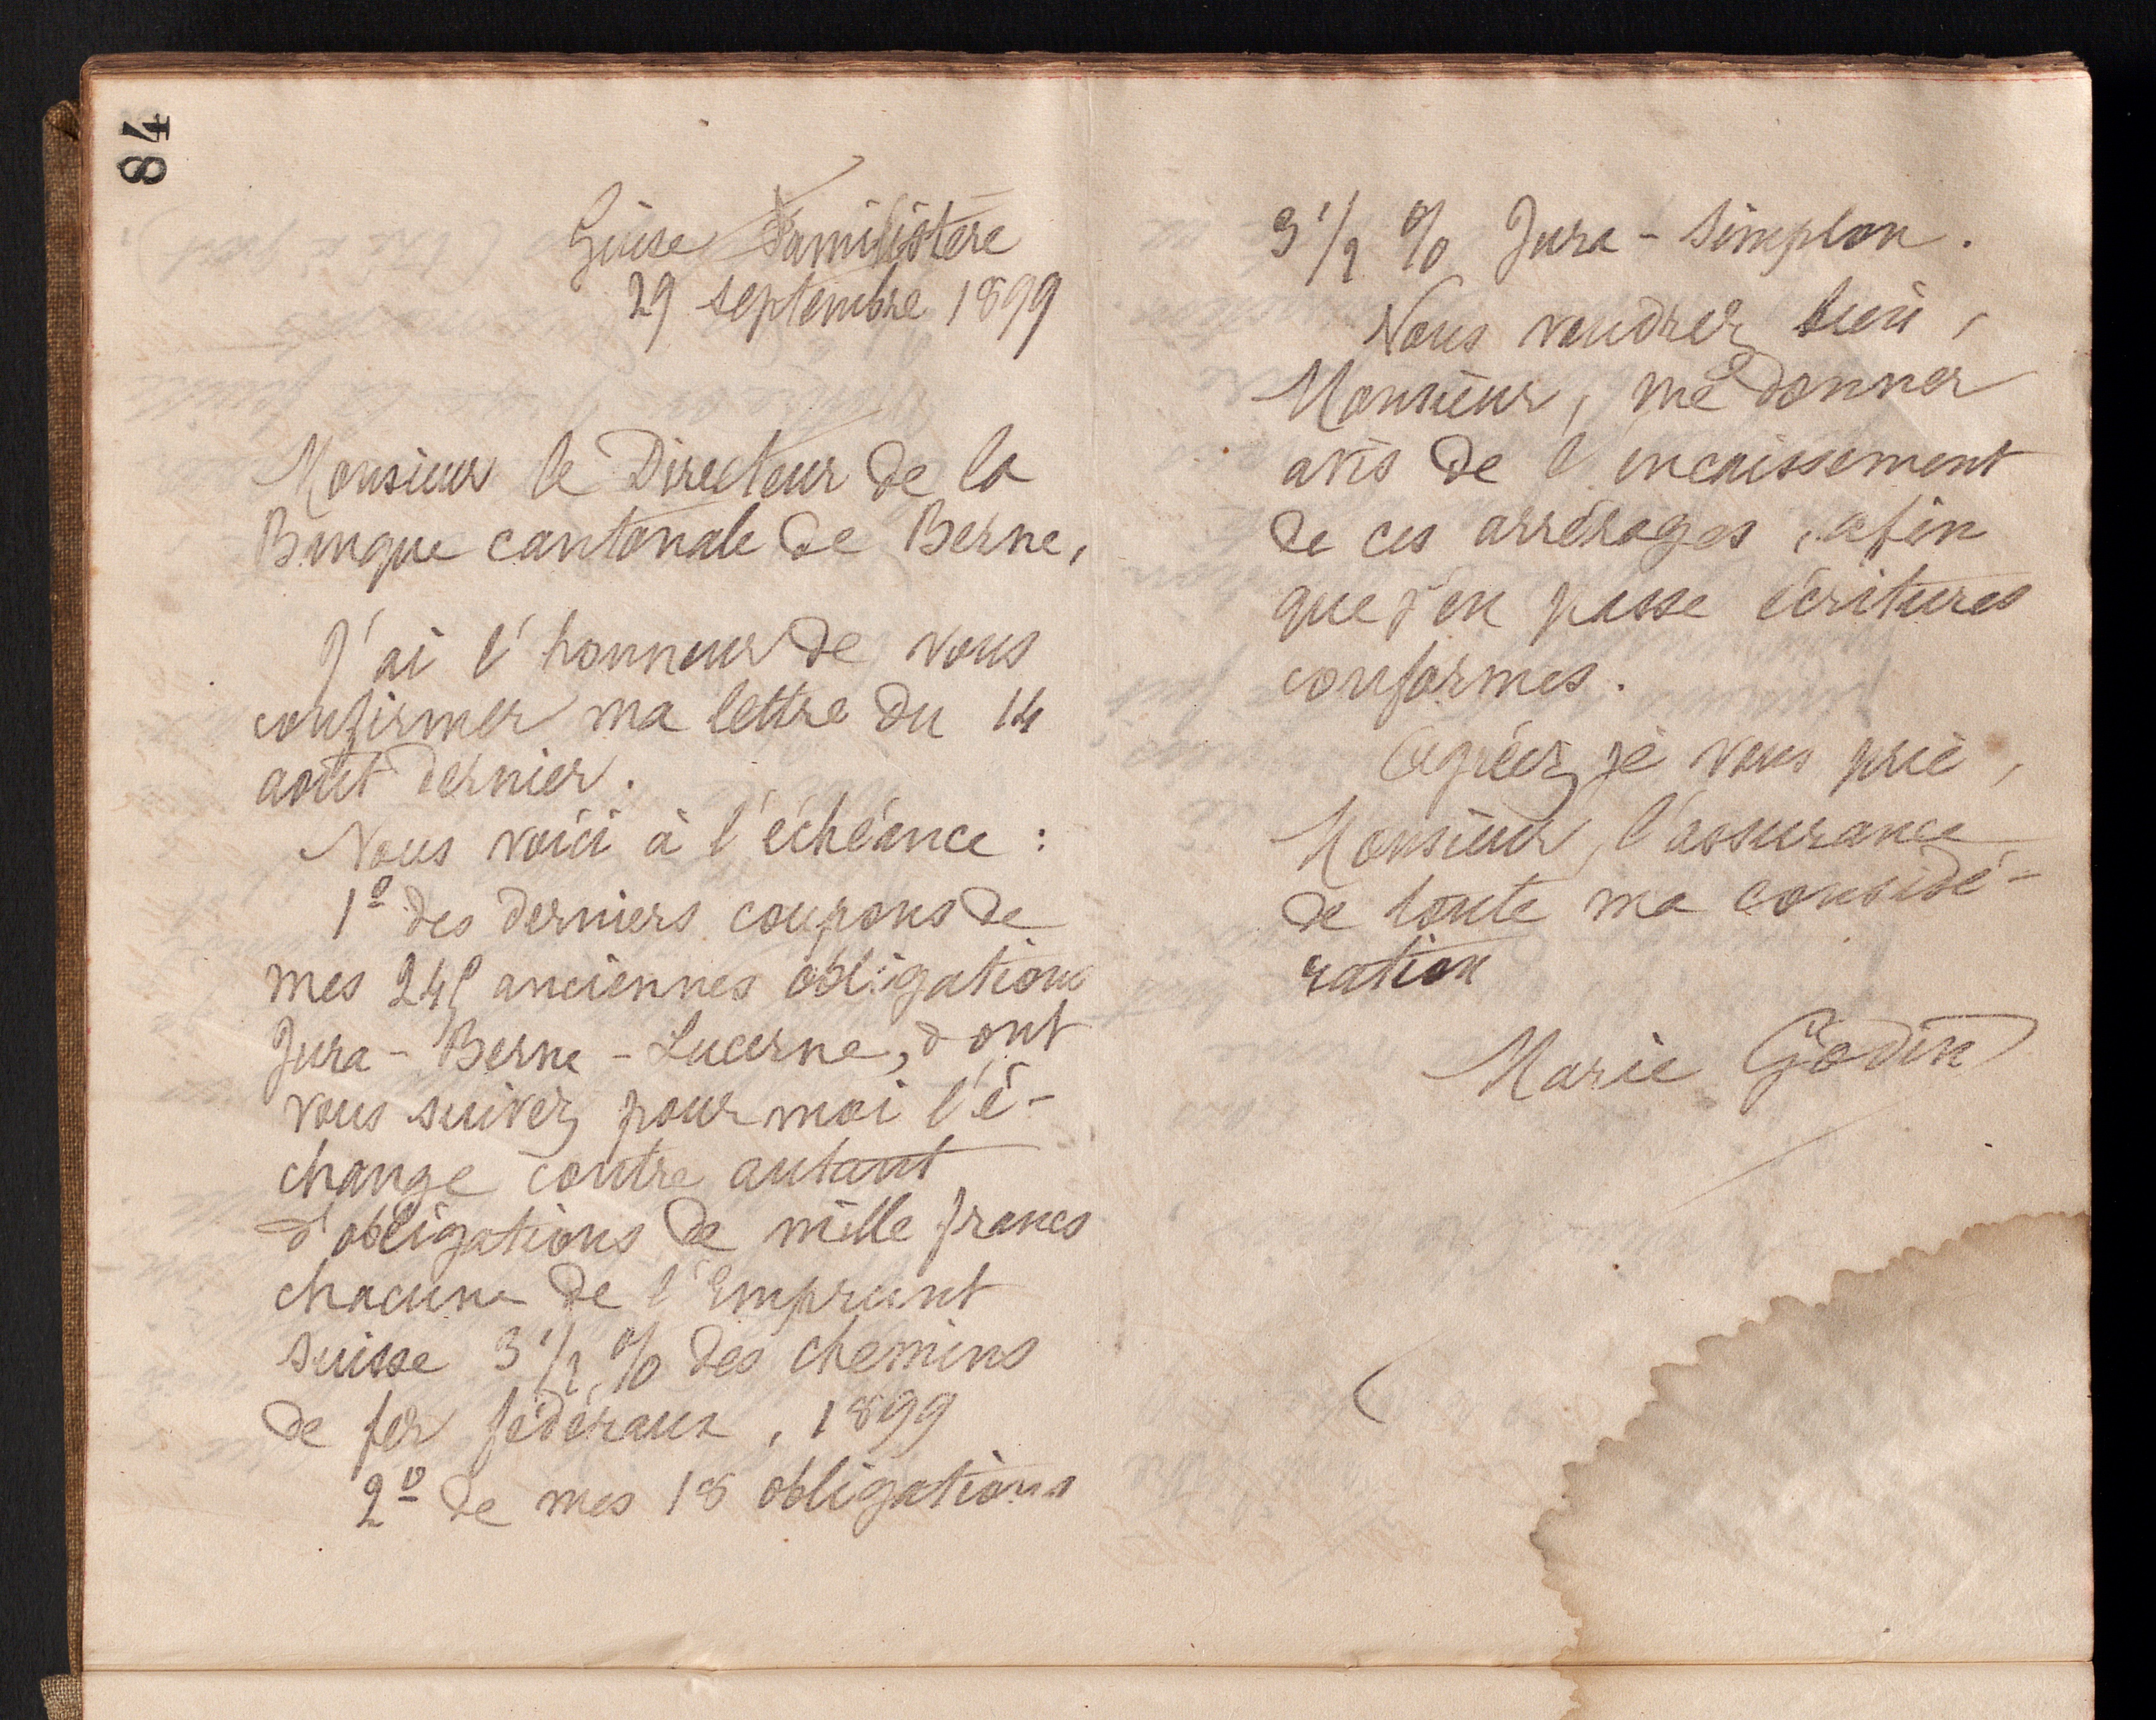 84
Guise Familistère
29 septembre 1899
Monsieur le Directeur de la
Banque cantonale de Berne,
J'ai l'honneur de vous
confirmer ma lettre du 14
août dernier.
Nous voici à l'échéance :
1º des derniers coupons de
mes anciennes obligations
Jura - Berne - Lucerne, dont
vous suivez pour moi l'é-
change contre autant
d'obligations de mille francs
chacune de l'Emprunt
suisse 3 1/2 % des chemins
de fer fédéraux, 1899
2º de mes 18 obligations
3 1/2 % Jura - Simplon.
Vous voudrez bien,
Monsieur, me donner
avis de l'encaissement
de ces arrérages, afin
que j'en passe écritures
conformes.
Agréez, je vous prie,
Monsieur, l'assurance
de toute ma considé-
ration
Marie Godin